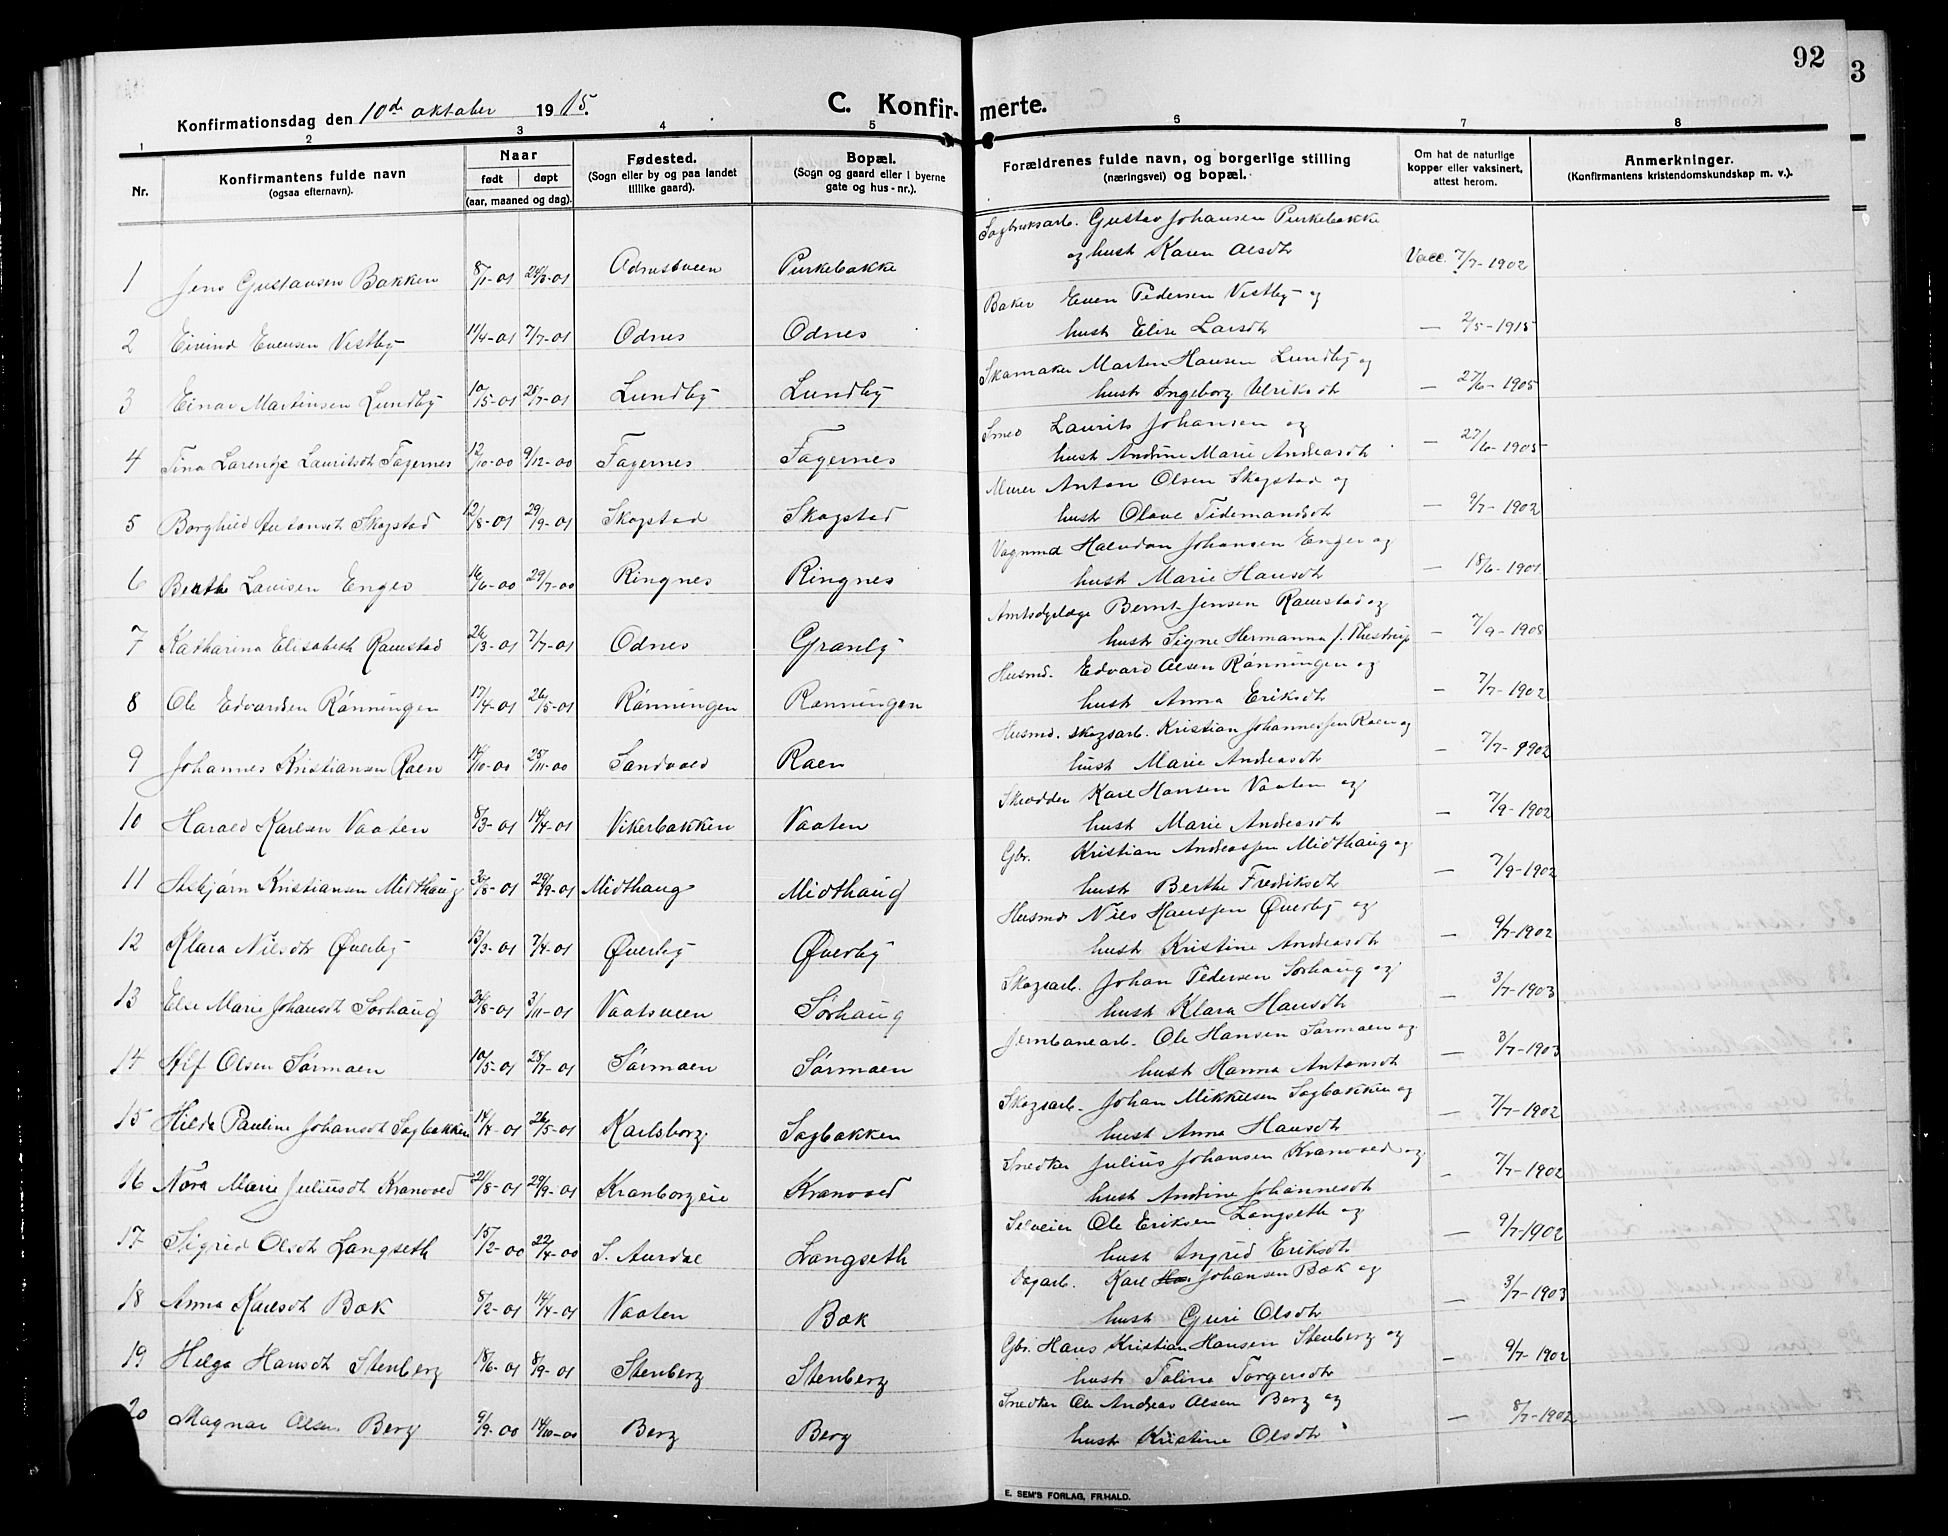 92
3
Konfirmationsdag den 10de oktober 1915. C. Konfir- merte.
1 2 3 4 5 6 7 8
Nr. Konfirmantens fulde navn (ogsaa efternavn). Naar født døpt (aar, maaned og dag). Fødested. (Sogn eller by og paa landet tillike gaard). Bopæl. (Sogn og gaard eller i byerne gate og hus-nr.). Forældrenes fulde navn, og borgerlige stilling (næringsvei) og bopæl. Om hat de naturlige kopper eller vaksinert, attest herom. Anmerkninger. (Konfirmantens kristendomskundskap m. v.).
Sagbruksarb. Gustav Johansen Purkebakke
1 Jens Gustavsen Bakken 8/1-01 24/3-01 Odnesveen Purkebakke og hust Karen Olsdt Vacc. 7/7-1902
Baker Even Pedersen Vestby og
2 Eivind Evensen Vestby 11/4-01 7/7-01 Odnes Odnes hust Elise Larsdt — 2/5-1915
Skomaker Martin Hansen Lundby og
3 Einar Martinsen Lundby 10/5-01 28/7-01 Lundby Lundby hust Ingeborg Ulriksdt — 27/6-1905
Smed Laurits Johansen og
4 Tina Lorense Lauritsdt Fagernes 12/10-00 9/12-00 Fagernes Fagernes hust Andrine Marie Andreasdt — 27/6-1905
Murer Anton Olsen Skogstad og
5 Borghild Antonsdt Skogstad 12/8-01 29/9-01 Skogstad Skogstad hust Olave Tidemandsdt — 9/7-1902
Vognmd Halvdan Johansen Enger og
6 Berthe Lovisen Enger 16/6-00 29/7-00 Ringnes Ringnes hust Marie Hansdt — 18/6-1901
Amtsdyrlæge Bernt Jensen Ramstad og
7 Katharina Elisabeth Ramstad 26/3-01 7/7-01 Odnes Granly hust Signe Hermanna f. Thestrup — 7/9-1908
Husmd. Edvard Olsen Rønningen og
8 Ole Edvardsen Rønningen 17/4-01 26/5-01 Rønningen Rønningen hust Anna Eriksdt — 7/7-1902
Husmd. skogsarb. Kristian Johannessen Raen og
9 Johannes Kristiansen Raen 14/10-00 25/11-00 Sandvold Raen hust Marie Andreasdt — 7/7-1902
Skrædder Karl Hansen Vaaten og
10 Harald Karlsen Vaaten 8/3-01 14/4-01 Vikerbakken Vaaten hust Marie Andreasdt — 7/9-1902
Gbr. Kristian Andreassen Midthaug og
11 Asbjørn Kristiansen Midthaug 30/8-01 29/9-01 Midthaug Midthaug hust Berthe Fredriksdt — 7/9-1902
Husmd Nils Hanssen Øverby og
12 Klara Nilsdt Øverby 13/3-01 7/4-01 Øverby Øverby hust Kristine Andreasdt — 9/7-1902
Skogsarb. Johan Pedersen Sørhaug og
13 Else Marie Johansdt Sørhaug 24/8-01 3/11-01 Vaatsveen Sørhaug hust Klara Hansdt — 3/7-1903
Jernbanearb. Ole Hansen Sørmoen og
14 Alf Olsen Sørmoen 10/5-01 28/7-01 Sørmoen Sørmoen hust Hanna Antonsdt — 3/7-1903
Skogsarb. Johan Mikkelsen Sagbakken og
15 Hilda Pauline Johansdt Sagbakken 14/4-01 26/5-01 Karlsborg Sagbakken hust Anna Hansdt — 7/7-1902
Snedker Julius Johansen Kranvold og
16 Nora Marie Juliusdt Kranvold 21/8-01 29/9-01 Kranborgeie Kranvold hust Andrine Johannesdt — 7/7-1902
Selveier Ole Eriksen Langseth og
17 Sigrid Olsdt Langseth 15/2-00 22/4-00 S. Aurdal Langseth hust Ingrid Eriksdt — 9/7-1902
Dagarb. Karl Johansen Bæk og
18 Anna Karlsdt Bæk 8/2-01 14/4-01 Vaaten Bæk hust Guri Olsdt — 3/7-1903
Gbr. Hans Kristian Hansen Stenberg og
19 Helga Hansdt Stenberg 18/6-01 8/9-01 Stenberg Stenberg hust Toline Torgersdt — 9/7-1902
Snedker Ole Andreas Olsen Berg og
20 Magnar Olsen Berg 9/9-00 14/10-00 Berg Berg hust Kristine Olsdt — 8/7-1902
E. SEM'S FORLAG, FR.HALD.